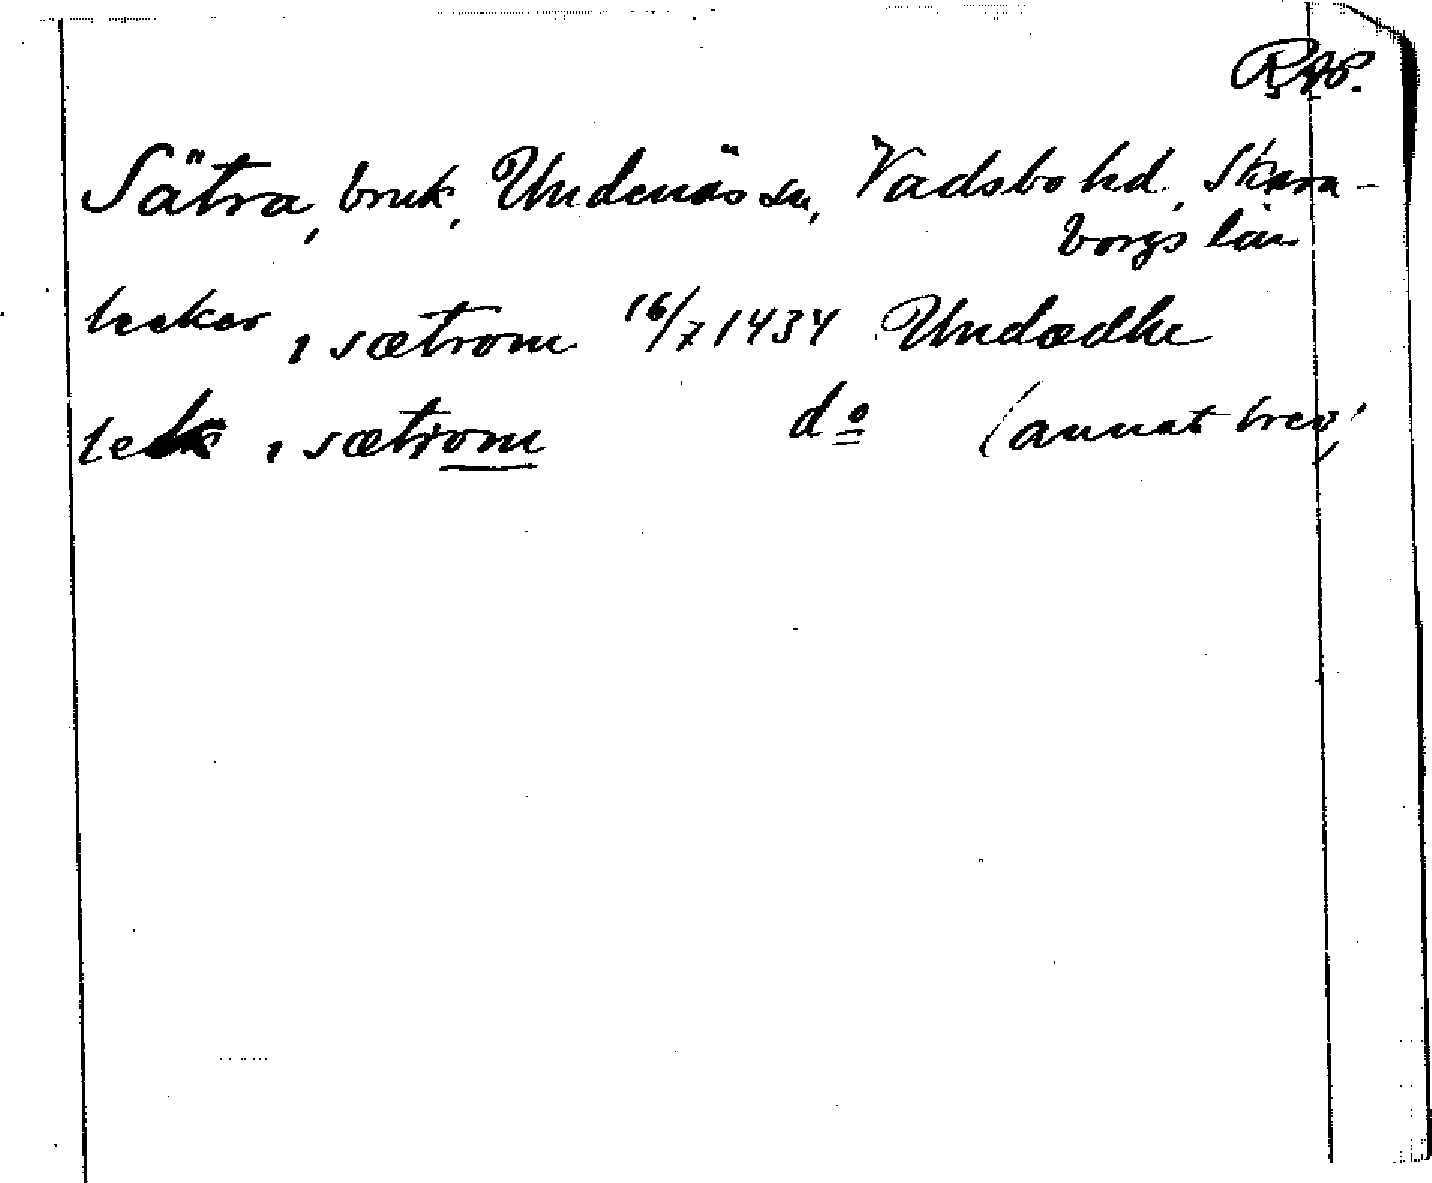 RAP.
Sätra, bruk, Undenäs sn, Vadsbo hd, Skara-
borgs län
i sætrom 16/7 1434 Undædhe
i sætrom do (annat brev)